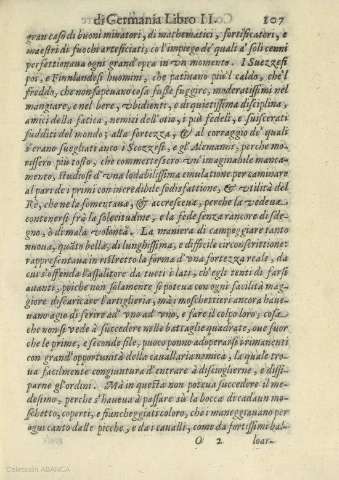 di Germania Libro II. 107
gran caso di buoni minatori, di mathematici, fortificatori, e
maestri di fuochi arteficiati, co l'impiego de' quali a' soli cenni
perfettionaua ogni grand'opra in vn momento. I Suezzesi
poi, e Finnlandesi huomini, che patiuano più'l caldo, che'l
freddo, che non sapeuano cosa fusse fuggire, moderatissimi nel
mangiare, e nel bere, vbidienti, e di quietissima disciplina,
amici della fatica, nemici dell'otio, i più fedeli, e suiscerati
sudditi del mondo; alla fortezza, & al corraggio de' quali
s'erano suegliati anto i Scozzesi, e gl'Alemanni, perche mo-
rissero più tosto, che commettessero vn'imaginabile manca-
mento, studiosi d'vna lodabilissima emulatione per caminare
al par de i primi con incredibile sodisfattione, & vtilità del
Rè, che ne la fomentaua, & accresceua, perche la vedeua
contenersi frà la solecitudine, e la fede senza rancore di sde-
gno, ò di mala volontà. La maniera di campeggiare tanto
nuoua, quāto bella; di lunghissima, e difficile circonscrittione:
rappresentaua in ristretto la forma d'vna fortezza reale, da
cui s'offenda l'assalitore da tutti i lati, ch'egli tenti di farsi
auanti, poiche non solamente si poteua con ogni facilità mag-
giore discaricare l'artiglieria, mà i moschettieri ancora haue-
uano agio di ferire ad' vno ad' vno, e fare il colpo loro; cosa
che non si vede à succedere nelle battaglie quadrate, oue fuor
che le prime, e seconde file, puoco ponno adoperarsi i rimanenti
con grand'opportunità della cauallaria nemica, la quale tro-
ua facilmente congiuntura d'entrare à disunglierne, e dissi-
parne gl'ordini. Mà in questa non poteua succedere il me-
desimo, perche s'haueua à passare sù la bocca di cadaun mo-
schetto, coperti, e fiancheggiati coloro, che i maneggiauano per
ogni canto dalle picche, e da i caualli, come da fortissimi bal-
O 2 loar-
Colección ABANCA